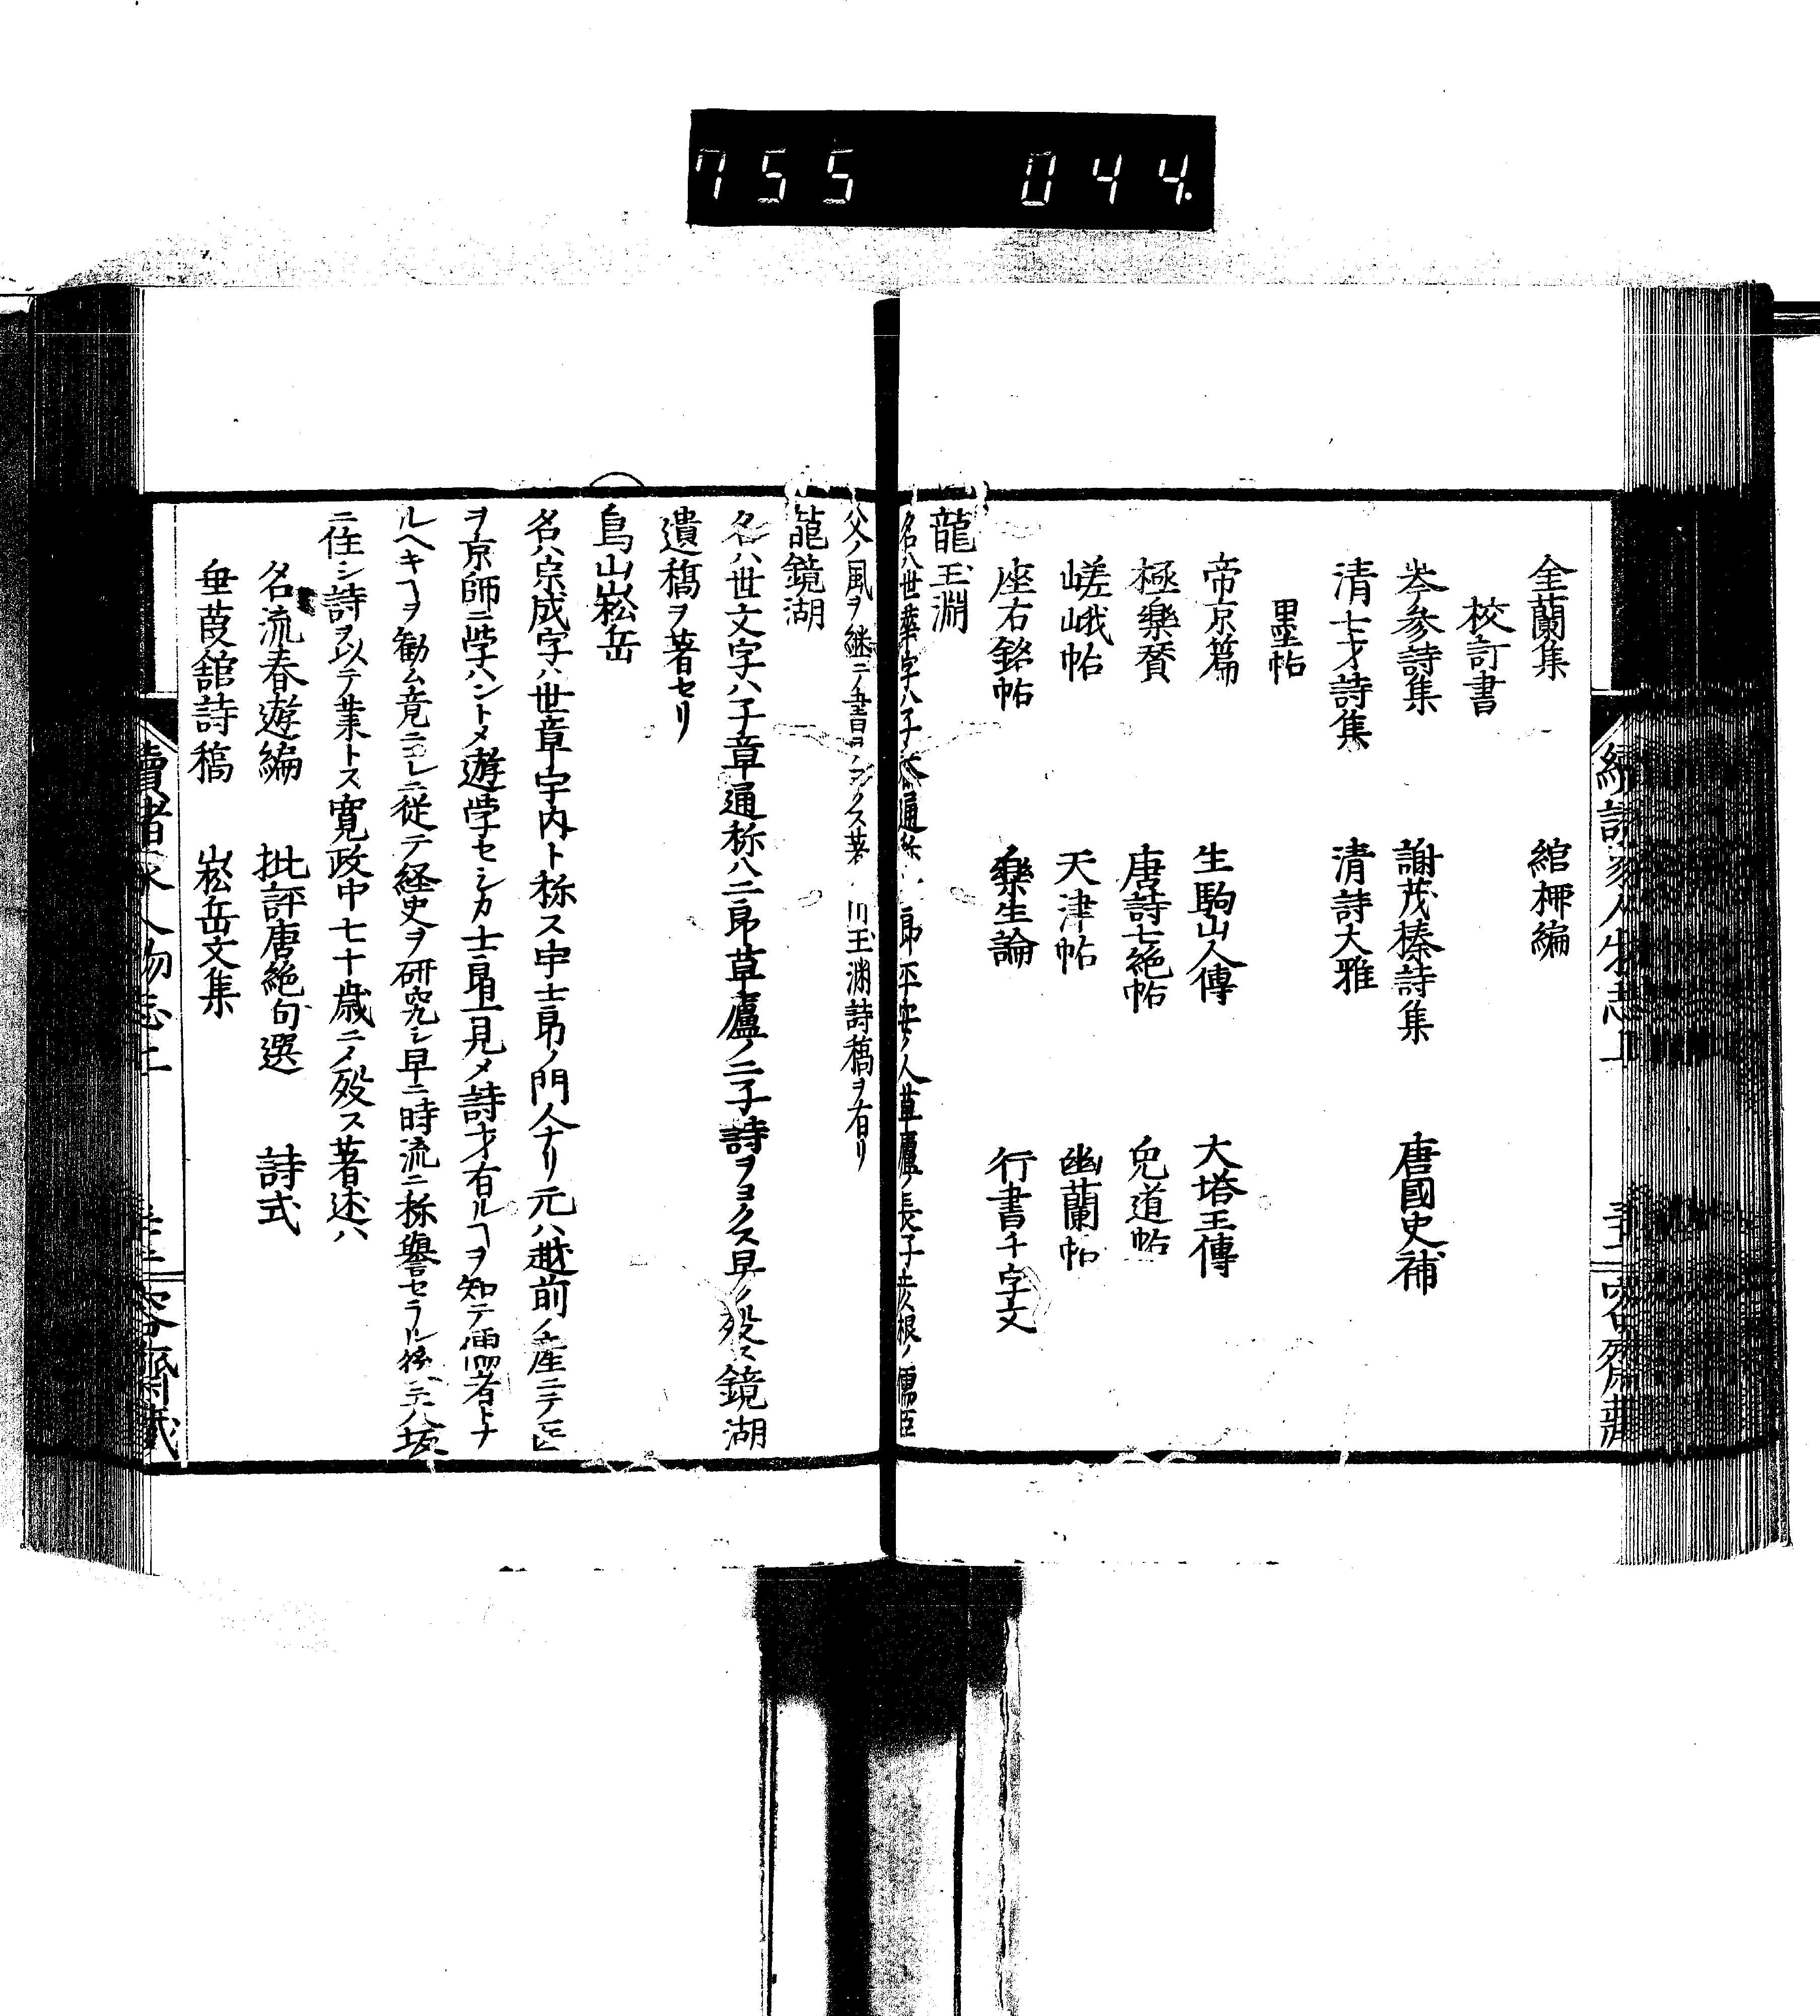 755 044.
金蘭集 綰柳編
校訂書
岑參詩集 謝茂榛詩集 唐國史補
清七才詩集 清詩大雅
墨帖
帝京篇 生駒山人傳 大塔王傳
極樂賛 唐詩七絶帖 兔道帖
嵯峨帖 天津帖 幽蘭帖
座右銘帖 樂生論 行書千字文
龍玉淵
名ハ世華字ハ子 通称 郎平安ノ人草廬ノ長子 根ノ儒臣
父ノ風ヲ継 テ書ヲ クス著 川玉渊詩稿ヲ有リ
龍鏡湖
名ハ世文字ハ子章通称ハ二郎草廬ノ二子詩ヲヨクス早ク歿ス鏡湖
遺稿ヲ著セリ
鳥山崧岳
名ハ宗成字ハ世章宇内ト称ス宇士郎ノ門人ナリ元ハ越前ノ産ニテ医
ヲ京師ニ学ハントメ遊学セシカ士郎一見メ詩才有ルヿヲ知テ儒者トナ
ルヘキヿヲ勧ム竟ニコレニ従テ経史ヲ研究シ早ニ時流ニ称譽セラル後 大坂
ニ住シ詩ヲ以テ業トス寛政中七十歳ニメ歿ス著述ハ
名流春遊編 批評唐絶句選 詩式
垂葭舘詩稿 崧岳文集
續諸家人物志上